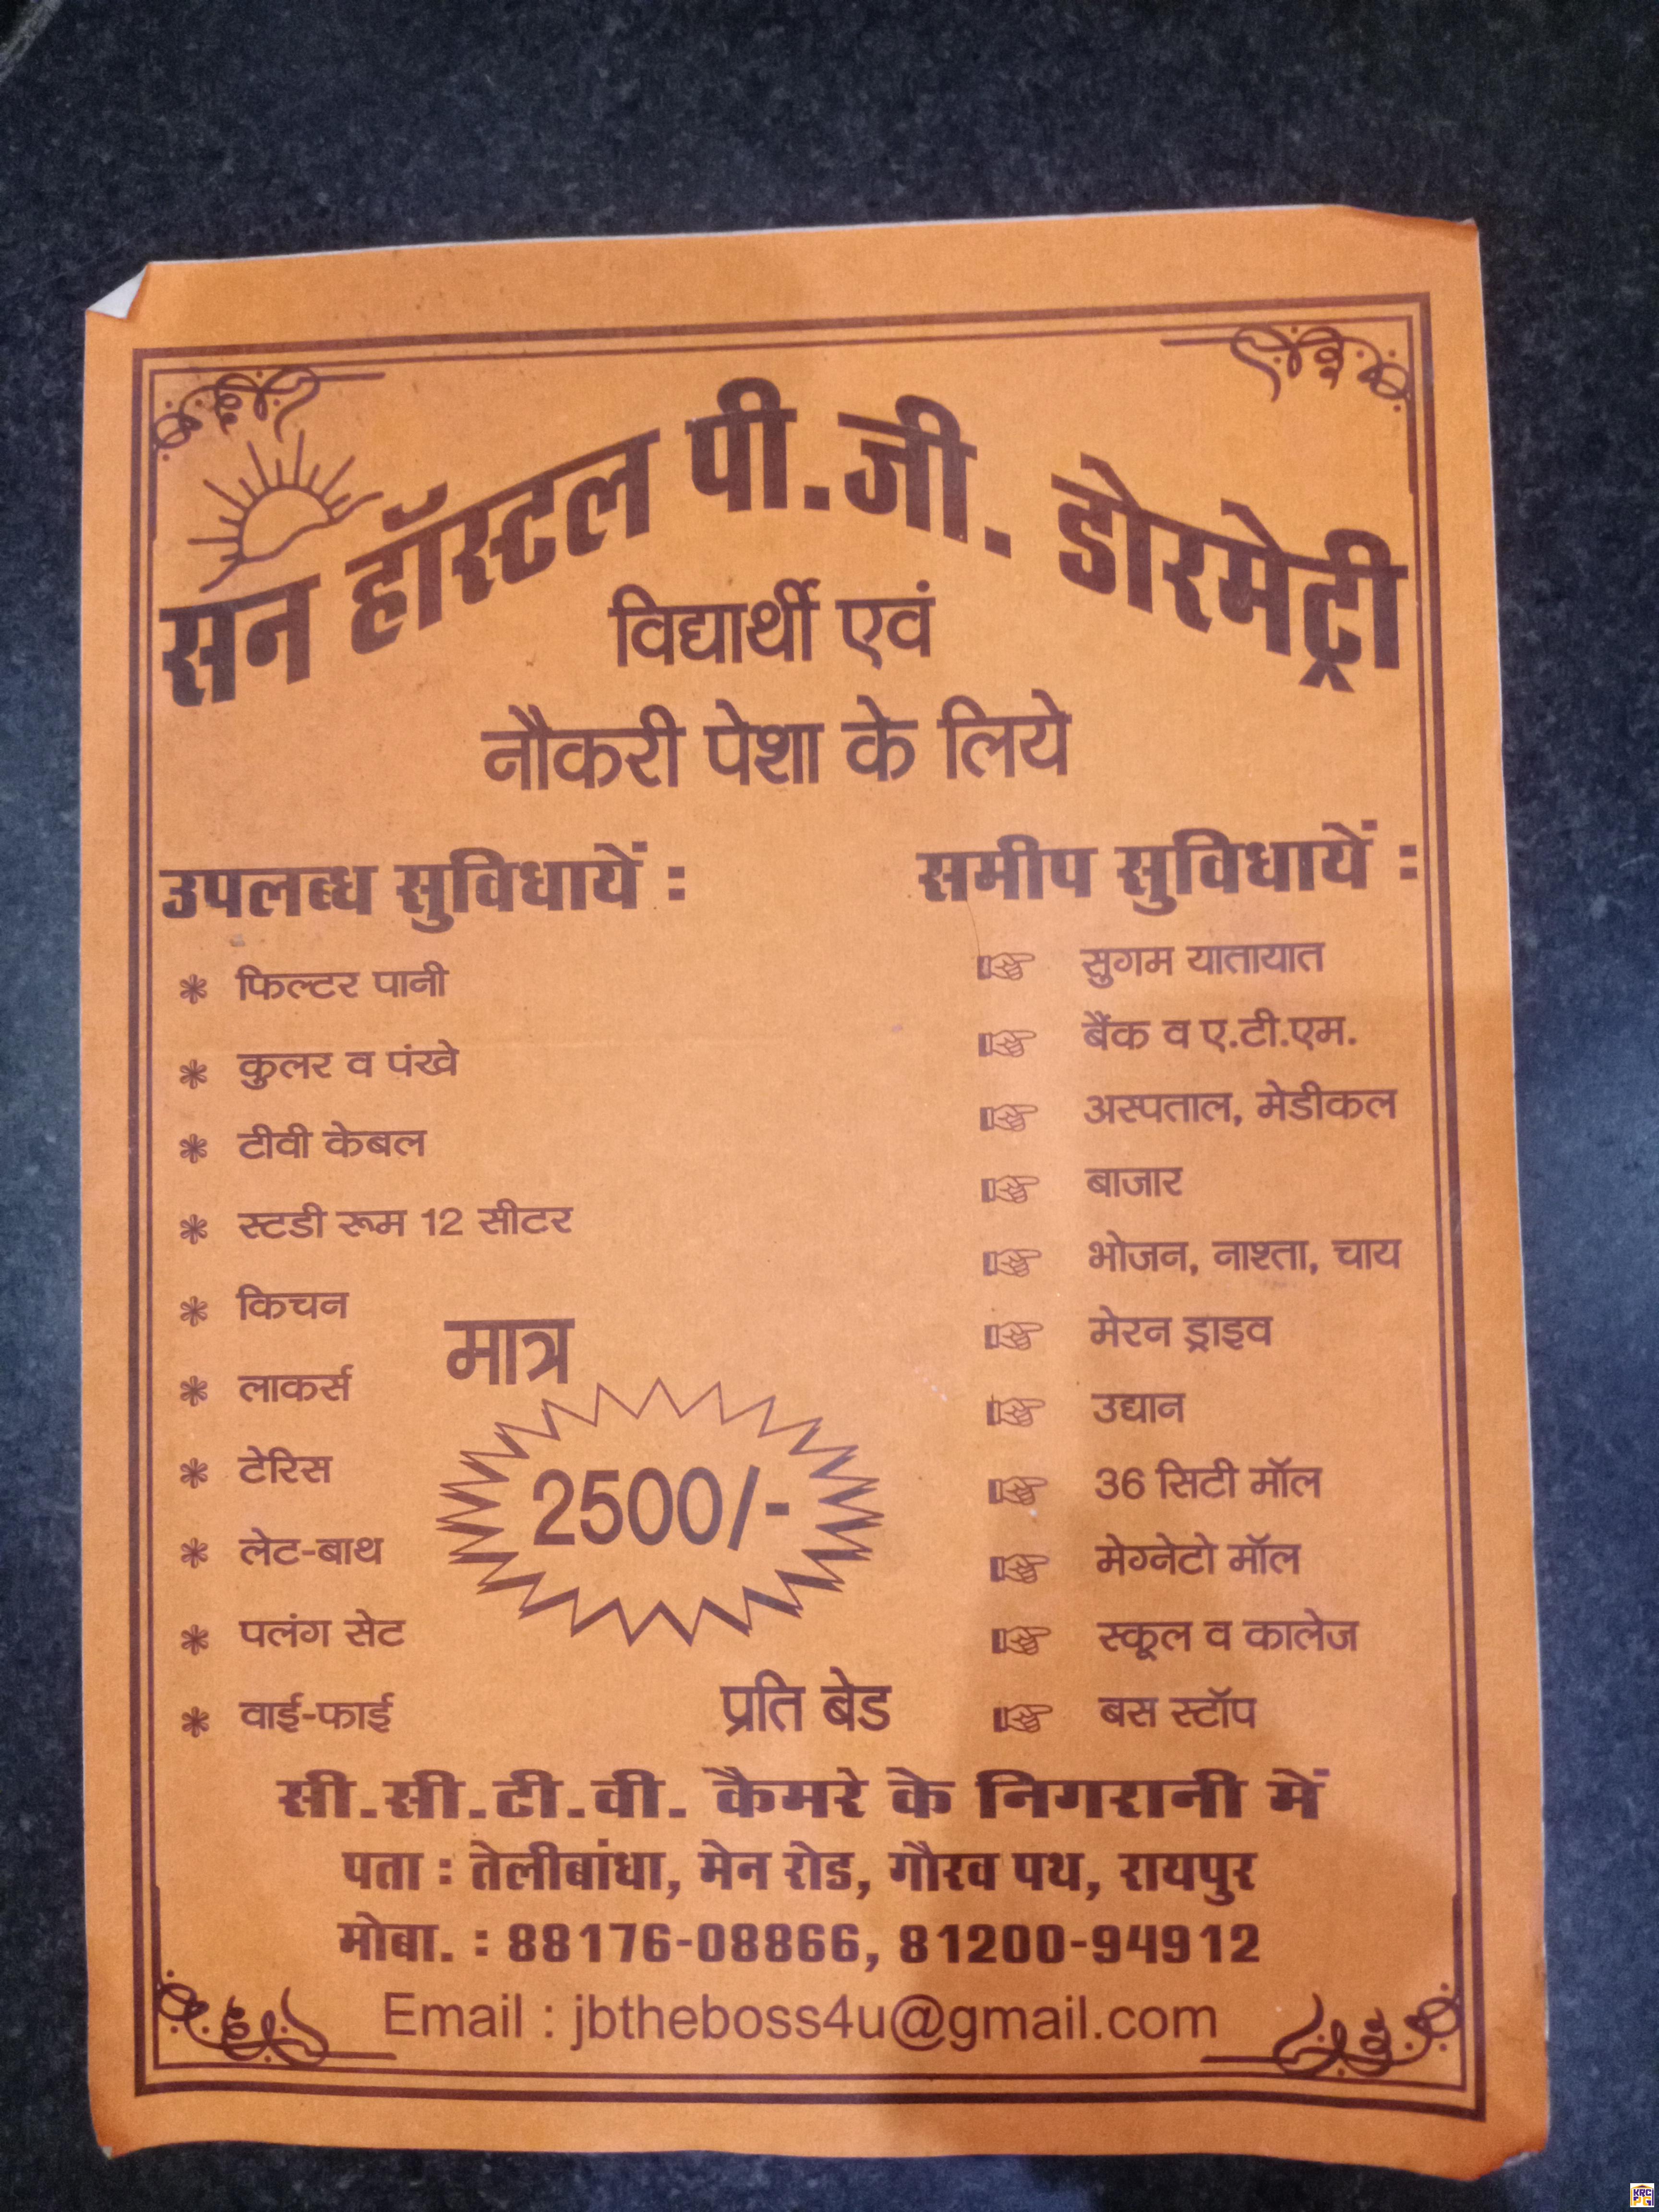 सन हॉस्टल पी.जी. डोरमेट्री
विद्यार्थी एवं
नौकरी पेशा के लिये
उपलब्ध सुविधायें :
फिल्टर पानी
कुलर व पंखे
टीवी केबल
स्टडी रूम 12 सीटर
किचन
लाकर्स
टेरिस
लेट-बाथ
पलंग सेट
वाई-फाई
मात्र
2500/-
प्रति बेड
समीप सुविधायें :
सुगम यातायात
बैंक व ए.टी.एम.
अस्पताल, मेडीकल
बाजार
भोजन, नाश्ता, चाय
मेरन ड्राइव
उद्यान
36 सिटी मॉल
मेग्नेटो मॉल
स्कूल व कालेज
बस स्टॉप
सी.सी.टी.वी. कैमरे के निगरानी में
पता : तेलीबांधा, मेन रोड, गौरव पथ, रायपुर
मोबा. : 88176-08866, 81200-94912
Email : jbtheboss4u@gmail.com
KRC
PG